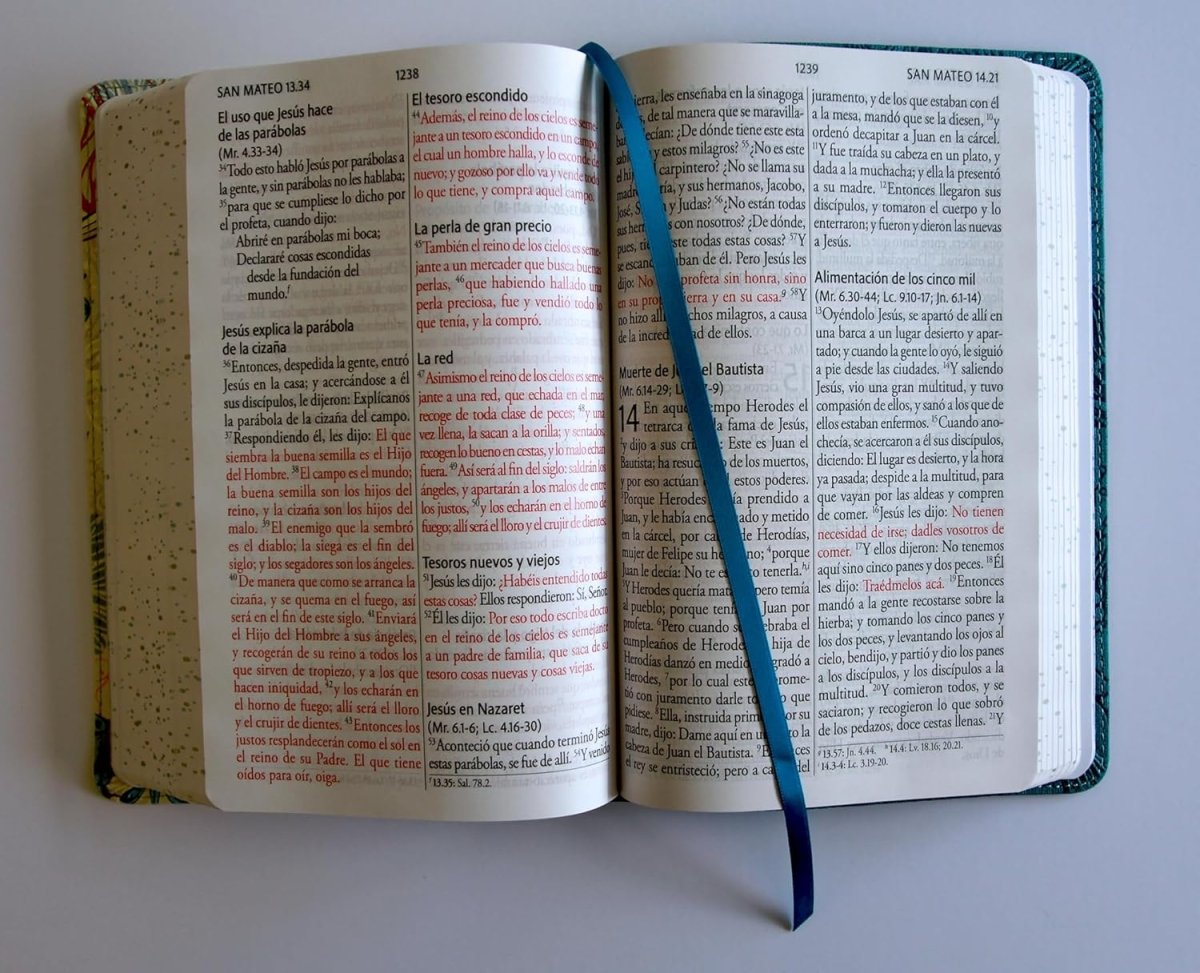 SAN MATEO 13.34
1238
El uso que Jesús hace
de las parábolas
(Mr. 4.33-34)
34Todo esto habló Jesús por parábolas a
la gente, y sin parábolas no les hablaba;
35para que se cumpliese lo dicho por
el profeta, cuando dijo:
Abriré en parábolas mi boca;
Declararé cosas escondidas
desde la fundación del
mundo.f
Jesús explica la parábola
de la cizaña
36Entonces, despedida la gente, entró
Jesús en la casa; y acercándose a él
sus discípulos, le dijeron: Explícanos
la parábola de la cizaña del campo.
37Respondiendo él, les dijo: El que
siembra la buena semilla es el Hijo
del Hombre. 38El campo es el mundo;
la buena semilla son los hijos del
reino, y la cizaña son los hijos del
malo. 39El enemigo que la sembró
es el diablo; la siega es el fin del
siglo; y los segadores son los ángeles.
40De manera que como se arranca la
cizaña, y se quema en el fuego, así
será en el fin de este siglo. 41Enviará
el Hijo del Hombre a sus ángeles,
y recogerán de su reino a todos los
que sirven de tropiezo, y a los que
hacen iniquidad, 42y los echarán en
el horno de fuego; allí será el lloro
y el crujir de dientes. 43Entonces los
justos resplandecerán como el sol en
el reino de su Padre. El que tiene
oídos para oír, oiga.
El tesoro escondido
44Además, el reino de los cielos es seme-
jante a un tesoro escondido en un campo,
el cual un hombre halla, y lo esconde de
nuevo; y gozoso por ello va y vende todo
lo que tiene, y compra aquel campo.
La perla de gran precio
45También el reino de los cielos es seme-
jante a un mercader que busca buenas
perlas, 46que habiendo hallado una
perla preciosa, fue y vendió todo lo
que tenía, y la compró.
La red
47Asimismo el reino de los cielos es seme-
jante a una red, que echada en el mar,
recoge de toda clase de peces; 48y una
vez llena, la sacan a la orilla; y sentados,
recogen lo bueno en cestas, y lo malo echan
fuera. 49Así será al fin del siglo: saldrán los
ángeles, y apartarán a los malos de entre
los justos, 50y los echarán en el horno de
fuego; allí será el lloro y el crujir de dientes.
Tesoros nuevos y viejos
51Jesús les dijo: ¿Habéis entendido todas
estas cosas? Ellos respondieron: Sí, Señor.
52Él les dijo: Por eso todo escriba docto
en el reino de los cielos es semejante
a un padre de familia, que saca de su
tesoro cosas nuevas y cosas viejas.
Jesús en Nazaret
(Mr. 6.1-6; Lc. 4.16-30)
53Aconteció que cuando terminó Jesús
estas parábolas, se fue de allí. 54Y venido
f 13.35: Sal. 78.2.
1239
SAN MATEO 14.21
tierra, les enseñaba en la sinagoga
de tal manera que se maravilla-
decían: ¿De dónde tiene este esta
y estos milagros? 55¿No es este
el hijo carpintero? ¿No se llama su
madre y sus hermanos, Jacobo,
José, y Judas? 56¿No están todas
sus con nosotros? ¿De dónde,
pues, este todas estas cosas? 57Y
se de él. Pero Jesús les
dijo: No profeta sin honra, sino
en su tierra y en su casa.g 58Y
no hizo allí milagros, a causa
de la de ellos.
Muerte de el Bautista
(Mr. 6.14-29;
14 En tiempo Herodes el
tetrarca la fama de Jesús,
2y dijo a sus Este es Juan el
Bautista; ha de los muertos,
y por eso actúan estos poderes.
3Porque Herodes prendido a
Juan, y le había y metido
en la cárcel, por de Herodías,
mujer de Felipe su 4porque
Juan le decía: No te tenerla.h,i
5Y Herodes quería pero temía
al pueblo; porque Juan por
profeta. 6Pero cuando se
cumpleaños de hija de
Herodías danzó en medio, agradó a
Herodes, 7por lo cual este
con juramento darle que
pidiese. 8Ella, instruida por su
madre, dijo: Dame aquí en la
cabeza de Juan el Bautista.
el rey se entristeció; pero a del
juramento, y de los que estaban con él
a la mesa, mandó que se la diesen, 10y
ordenó decapitar a Juan en la cárcel.
11Y fue traída su cabeza en un plato, y
dada a la muchacha; y ella la presentó
a su madre. 12Entonces llegaron sus
discípulos, y tomaron el cuerpo y lo
enterraron; y fueron y dieron las nuevas
a Jesús.
Alimentación de los cinco mil
(Mr. 6.30-44; Lc. 9.10-17; Jn. 6.1-14)
13Oyéndolo Jesús, se apartó de allí en
una barca a un lugar desierto y apar-
tado; y cuando la gente lo oyó, le siguió
a pie desde las ciudades. 14Y saliendo
Jesús, vio una gran multitud, y tuvo
compasión de ellos, y sanó a los que de
ellos estaban enfermos. 15Cuando ano-
checía, se acercaron a él sus discípulos,
diciendo: El lugar es desierto, y la hora
ya pasada; despide a la multitud, para
que vayan por las aldeas y compren
de comer. 16Jesús les dijo: No tienen
necesidad de irse; dadles vosotros de
comer. 17Y ellos dijeron: No tenemos
aquí sino cinco panes y dos peces. 18Él
les dijo: Traédmelos acá. 19Entonces
mandó a la gente recostarse sobre la
hierba; y tomando los cinco panes y
los dos peces, y levantando los ojos al
cielo, bendijo, y partió y dio los panes
a los discípulos, y los discípulos a la
multitud. 20Y comieron todos, y se
saciaron; y recogieron lo que sobró
de los pedazos, doce cestas llenas. 21Y
g 13.57: Jn. 4.44. h 14.4: Lv. 18.16; 20.21.
i 14.3-4: Lc. 3.19-20.